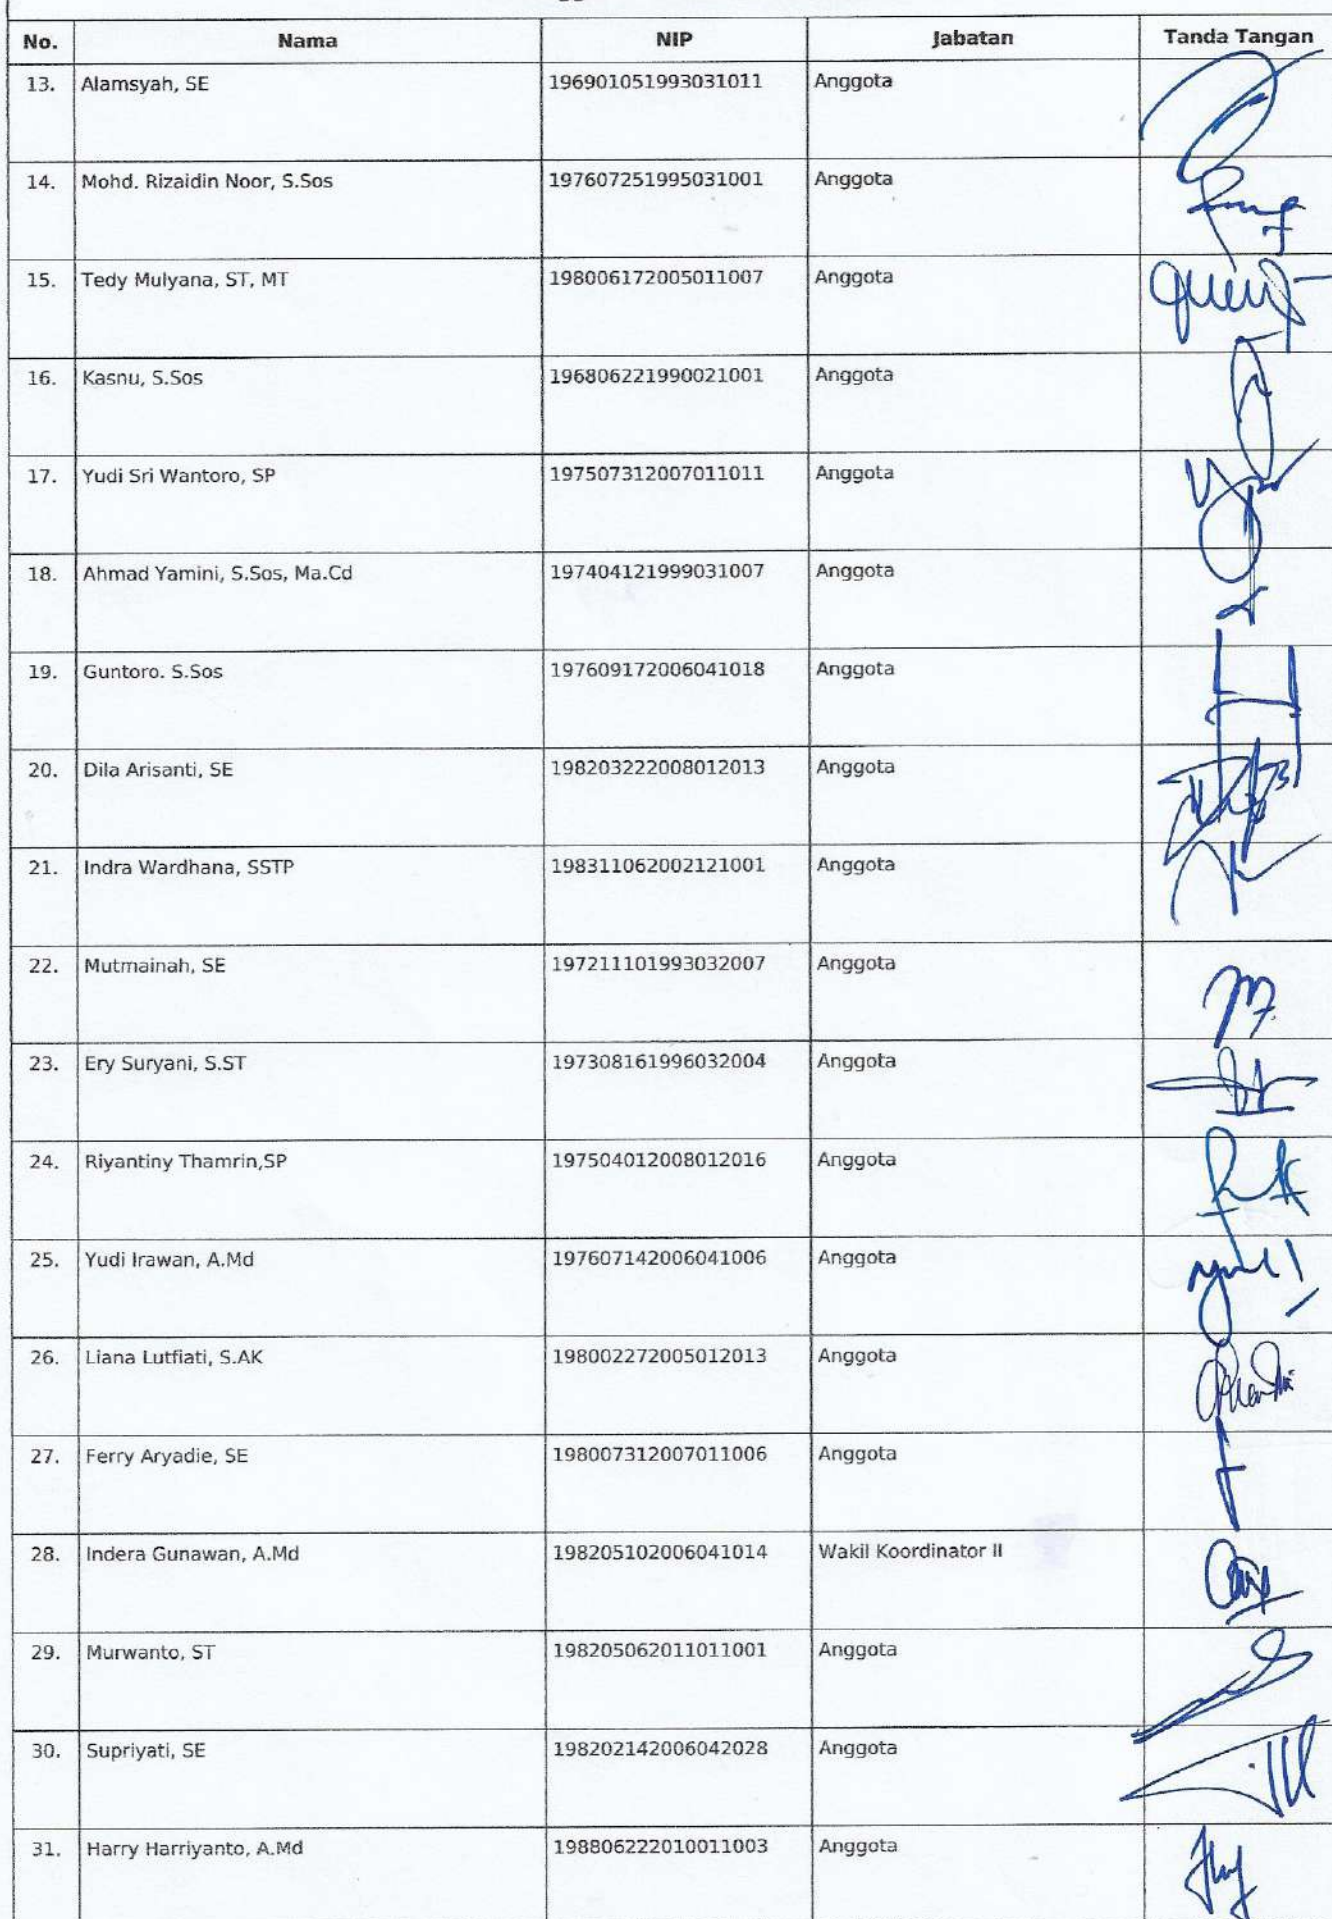 No. Nama NIP Jabatan Tanda Tangan
13. Alamsyah, SE 196901051993031011 Anggota
14. Mohd. Rizaidin Noor, S.Sos 197607251995031001 Anggota
15. Tedy Mulyana, ST, MT 198006172005011007 Anggota
16. Kasnu, S.Sos 196806221990021001 Anggota
17. Yudi Sri Wantoro, SP 197507312007011011 Anggota
18. Ahmad Yamini, S.Sos, Ma.Cd 197404121999031007 Anggota
19. Guntoro. S.Sos 197609172006041018 Anggota
20. Dila Arisanti, SE 198203222008012013 Anggota
21. Indra Wardhana, SSTP 198311062002121001 Anggota
22. Mutmainah, SE 197211101993032007 Anggota
23. Ery Suryani, S.ST 197308161996032004 Anggota
24. Riyantiny Thamrin,SP 197504012008012016 Anggota
25. Yudi Irawan, A.Md 197607142006041006 Anggota
26. Liana Lutfiati, S.AK 198002272005012013 Anggota
27. Ferry Aryadie, SE 198007312007011006 Anggota
28. Indera Gunawan, A.Md 198205102006041014 Wakil Koordinator II
29. Murwanto, ST 198205062011011001 Anggota
30. Supriyati, SE 198202142006042028 Anggota
31. Harry Harriyanto, A.Md 198806222010011003 Anggota